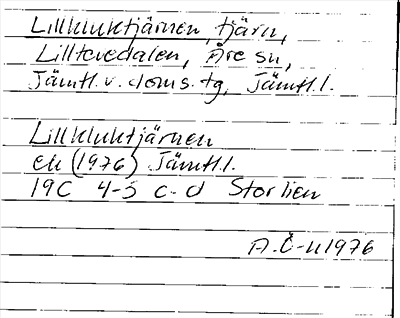 Lillkluktjärnen, tjärn,
Lilltevedalen, Åre sn,
Jämtl. v. doms. tg, Jämtl. l.
Lillkluktjärnen
ek (1976) Jämtl. l.
19C 4-5 c-d Storlien
A. Č-n 1976